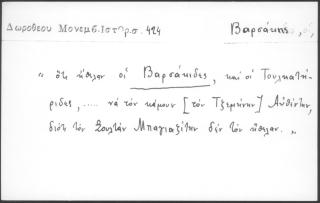 Δωροθέου Μονεμβ. Ιστ. σ. 424
Βαρσάκης, οἱ,
"ὅτι ἤθελαν οἱ Βαρσάκιδες, καὶ οἱ Τουλκατή-
ριδες, ..... νὰ τὸν κάμουν [τὸν Τζεμήνην] Αὐθέντην,
διότι τὸν Σουλτὰν Μπαγιαζίτην δὲν τὸν ἤθελαν."